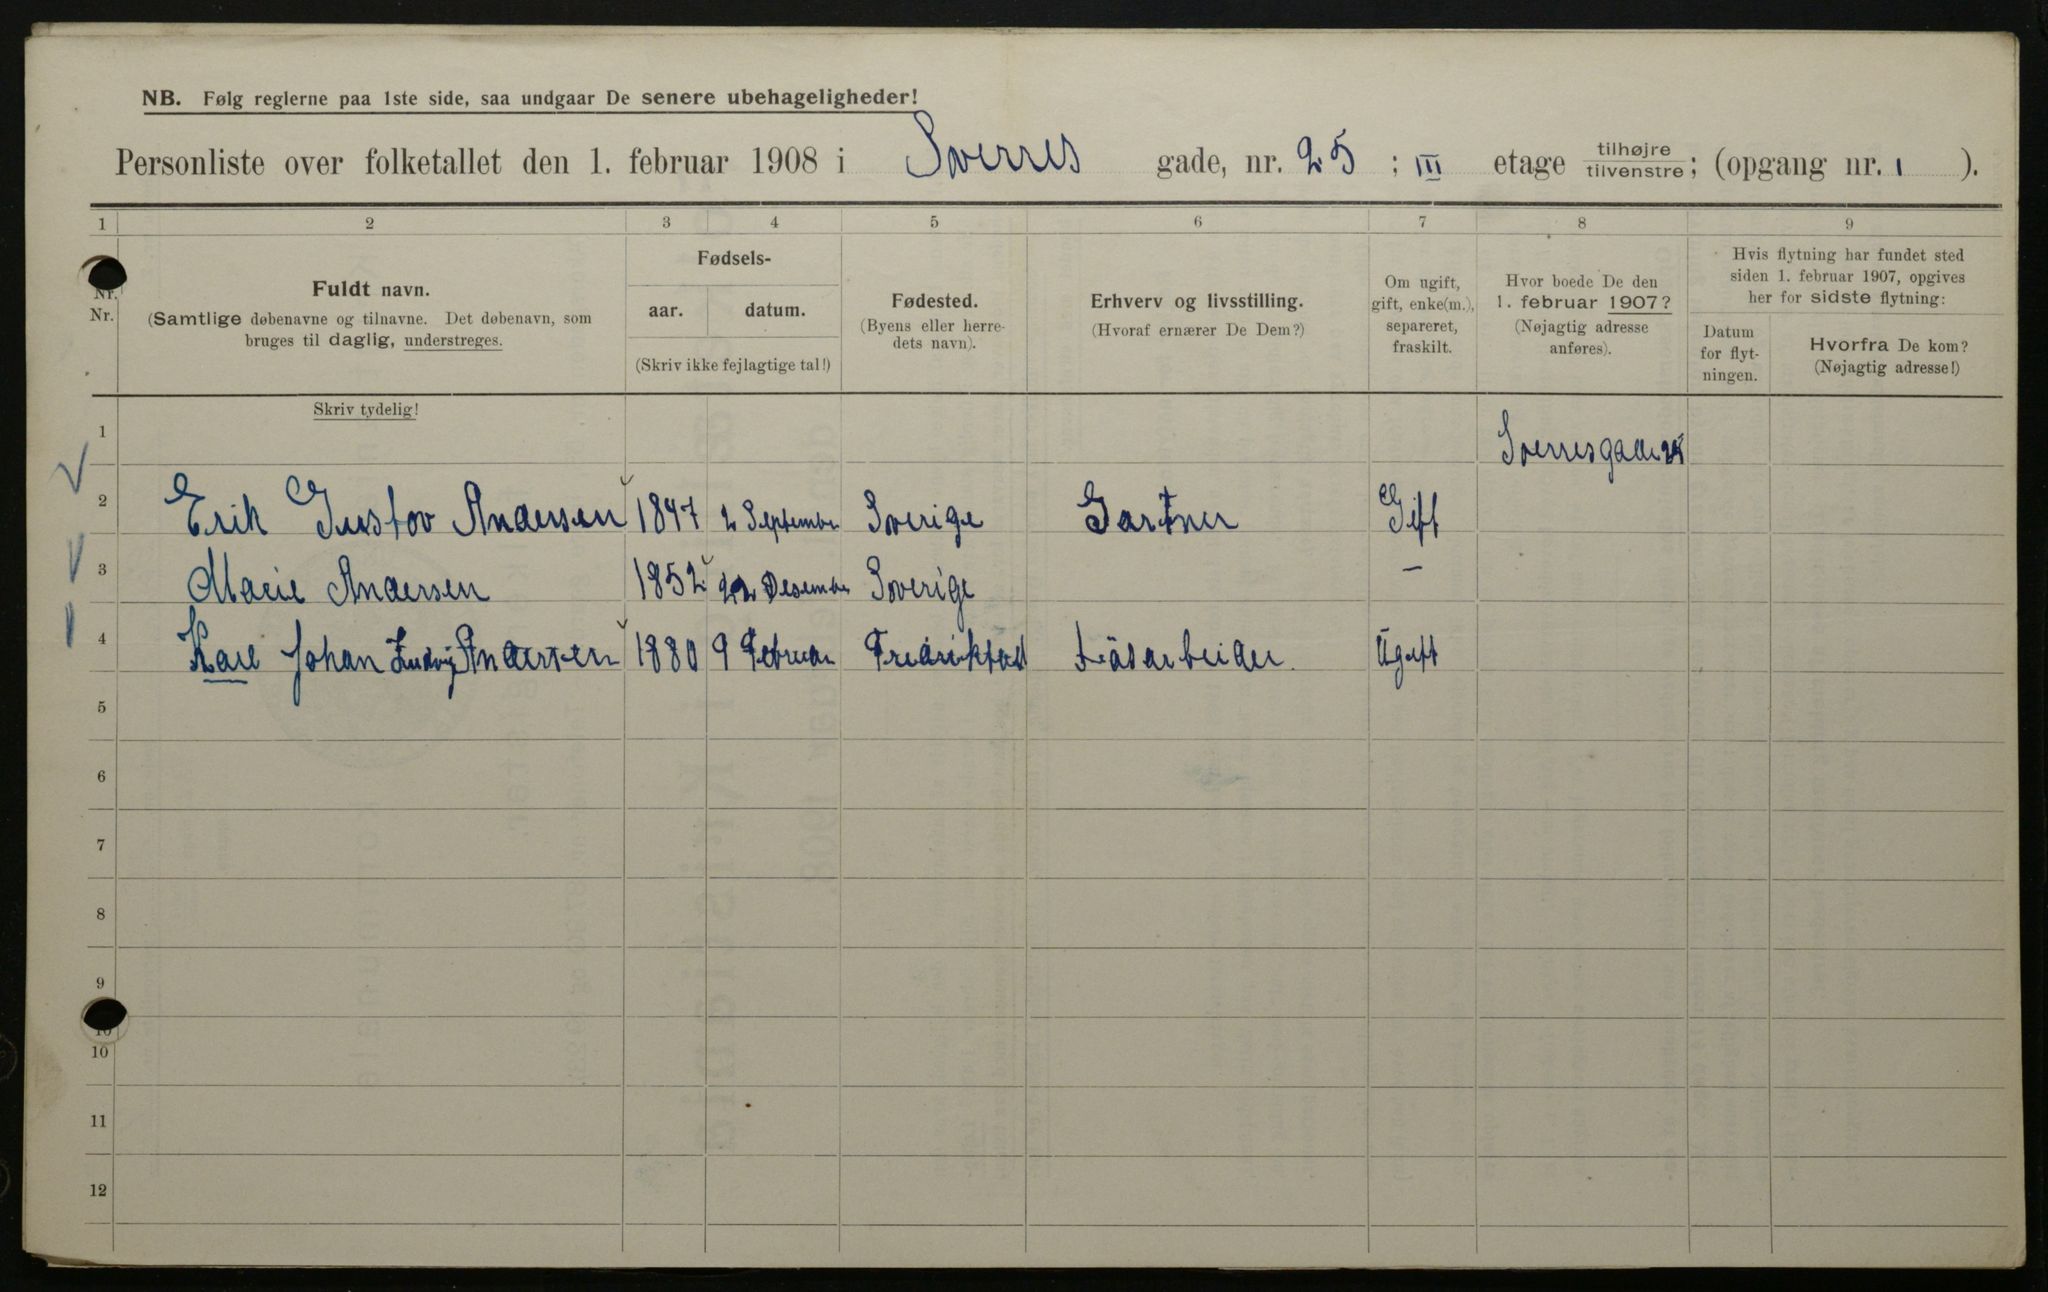 NB. Følg reglerne paa 1ste side, saa undgaar De senere ubehageligheder!
Personliste over folketallet den 1. februar 1908 i Sverres gade, nr. 25; III etage tilhøjre tilvenstre; (opgang nr. 1 ).
1 2 3 4 5 6 7 8 9
Nr. Nr.
Fuldt navn.
(Samtlige døbenavne og tilnavne. Det døbenavn, som
bruges til daglig, understreges.
Fødsels-
aar. datum.
(Skriv ikke fejlagtige tal!)
Fødested.
(Byens eller herre-
dets navn).
Erhverv og livsstilling.
(Hvoraf ernærer De Dem?)
Om ugift,
gift, enke(m.),
separeret,
fraskilt.
Hvor boede De den
1. februar 1907?
(Nøjagtig adresse
anføres).
Hvis flytning har fundet sted
siden 1. februar 1907, opgives
her for sidste flytning:
Datum
for flyt-
ningen.
Hvorfra De kom?
(Nøjagtig adresse!)
Skriv tydelig!
1 Sverresgade 25
2 Erik Gustov Andersen 1847 2 September Sverige Gartner Gift
3 Marie Andersen 1852 22 Desember Sverige –
4 Karl Johan Ludvig Andersen 1880 9 Februar Fredrikstad Løsarbeider Ugift
5
6
7
8
9
10
10
11
12